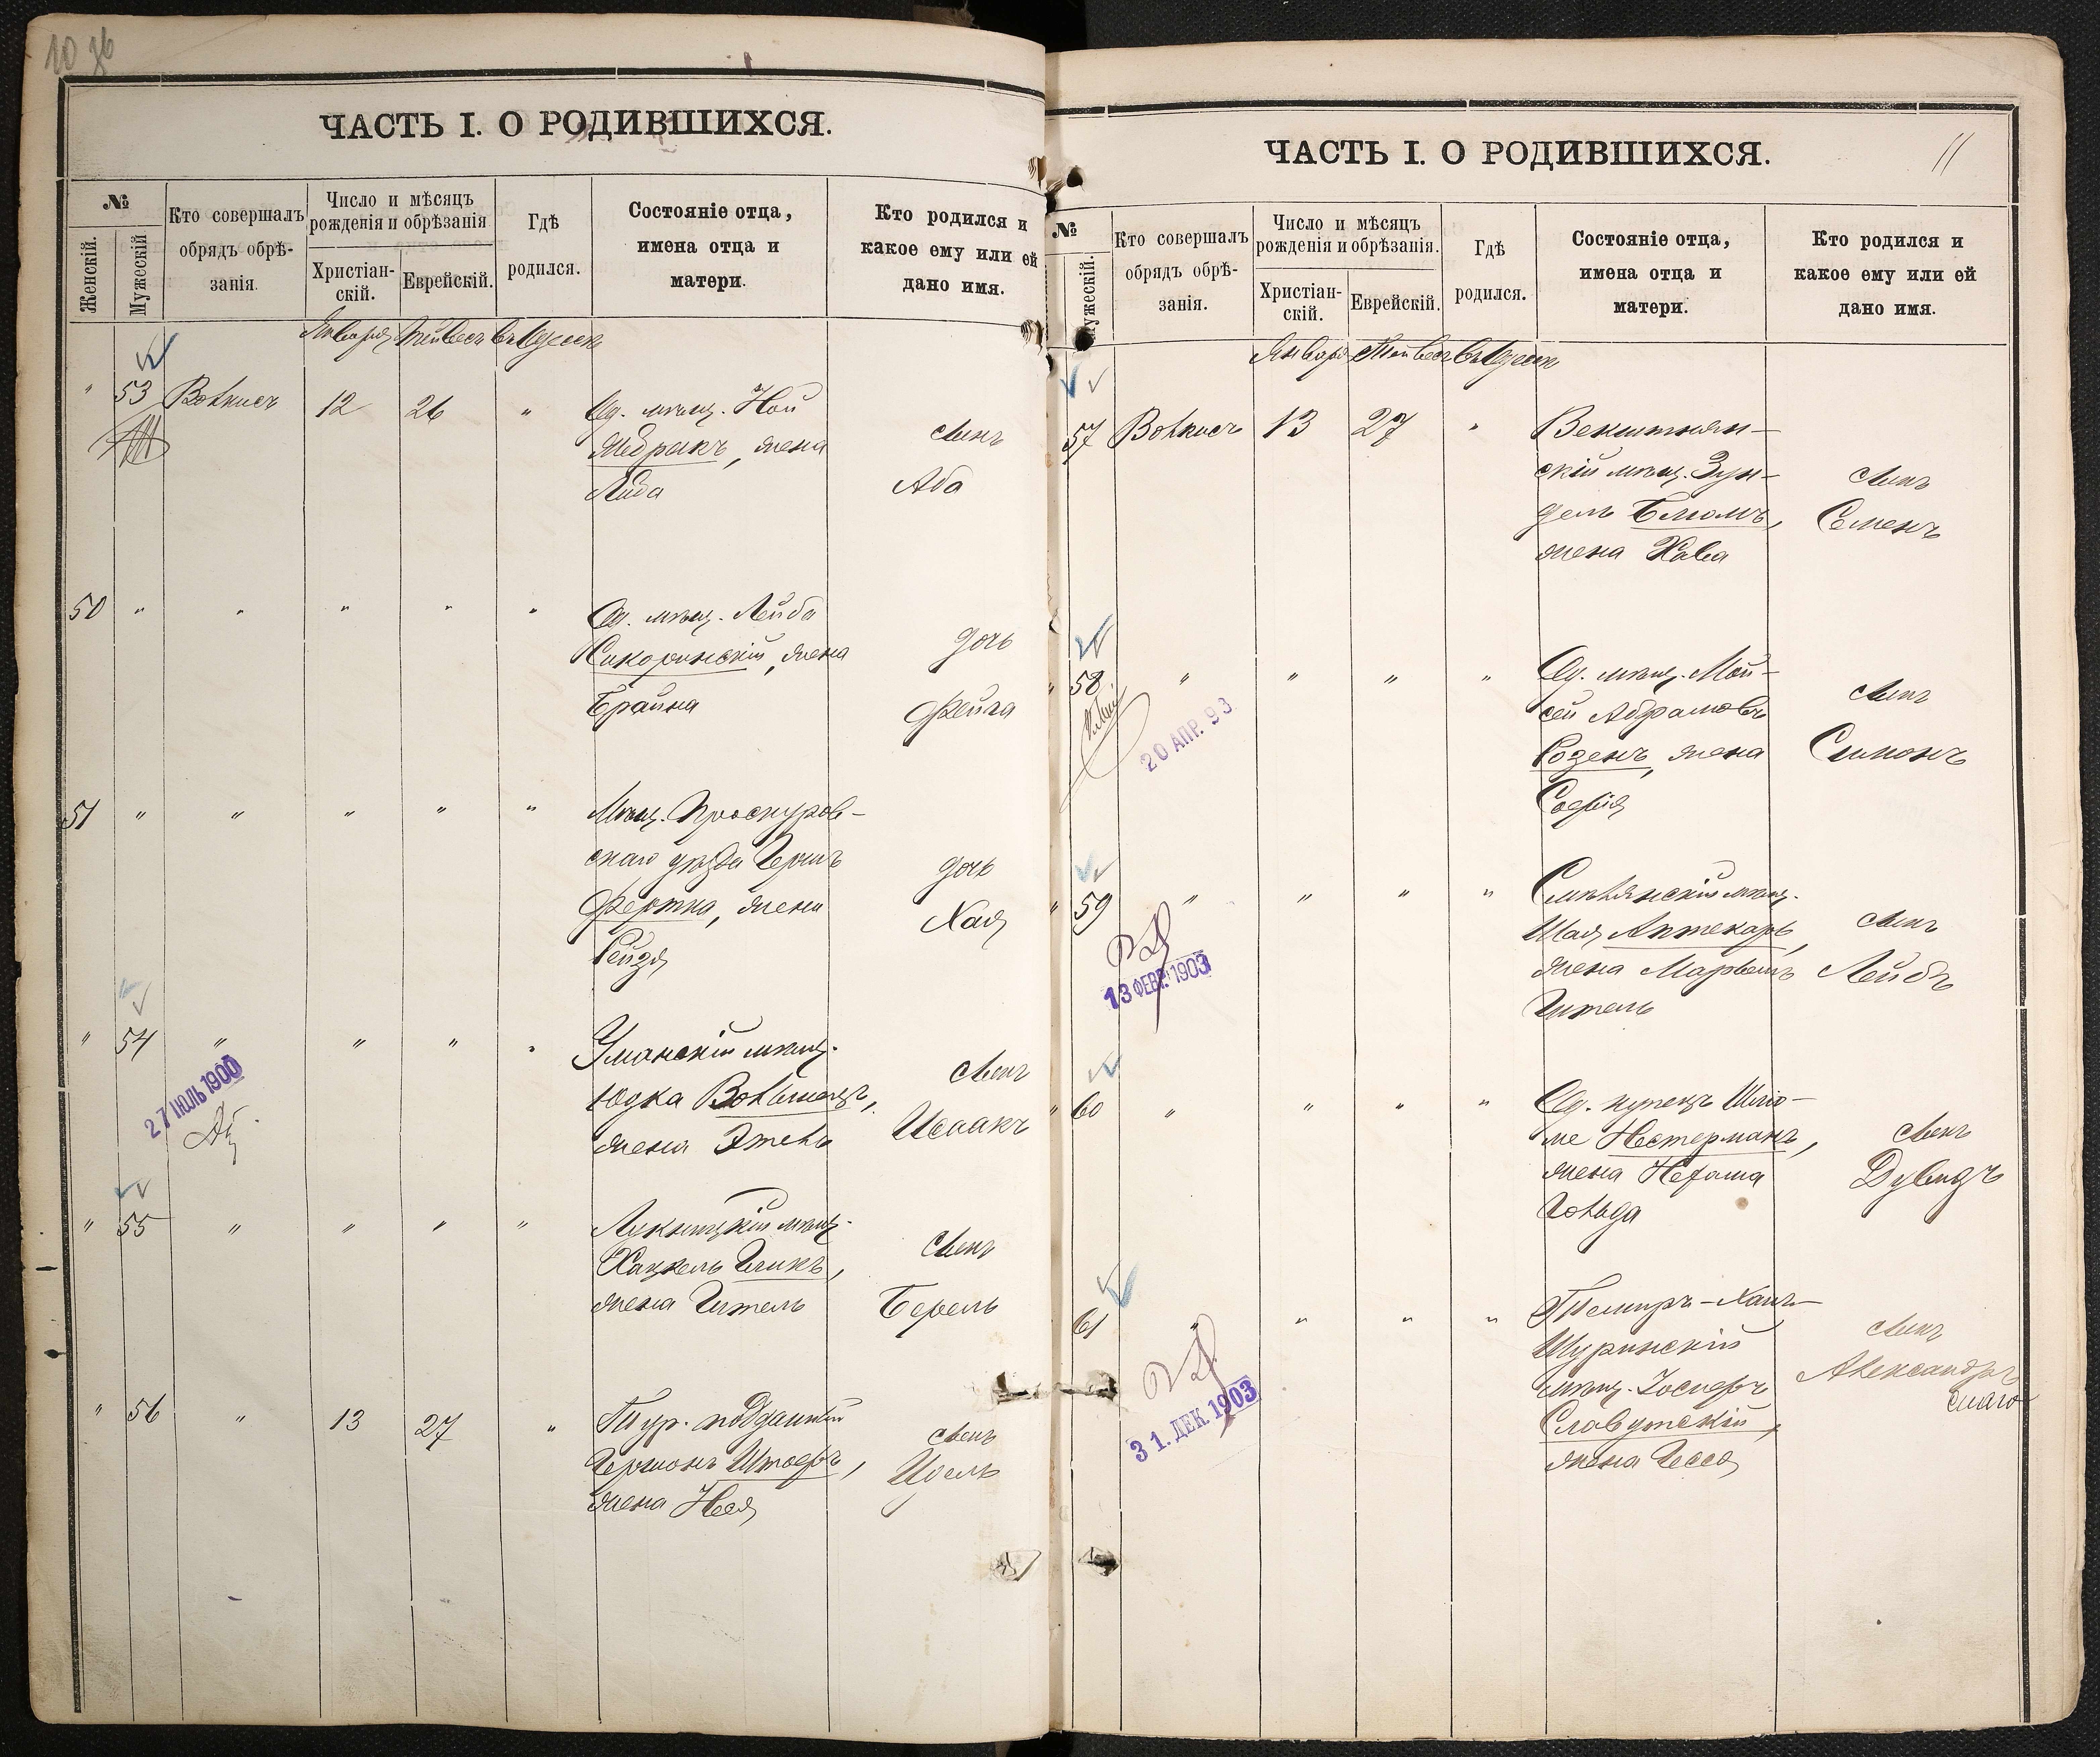 10 об
ЧАСТЬ I. О РОДИВШИХСЯ.
№
Женскій.
Мужескій
Кто совершалъ обрядъ обрѣ-
занія.
Число и мѣсяцъ
рожденія и обрѣзанія
Христіан-
скій.
Еврейскій.
Гдѣ
родился.
Состояніе отца,
имена отца и
матери.
Кто родился и
какое ему или ей
дано имя.
Января Тейвесъ въ Одессѣ
" 53 Волкисъ 12 26 " Од. мѣщ. Ной
жена
сынъ
Аба
50 " " " " " Од. мѣщ. Лейба
Сикоринскій, жена
Брайна
дочь
Фейга
51 " " " " " Мѣщ. Проскуров-
скаго уѣзда Гершъ
жена
Рейзя
дочь
Хая
" 54 " " " " Уманскій мѣщ.
Юдка жена Этель
сынъ
Исаакъ
27 ІЮЛЬ 1900
" 55 " " " " мѣщ.
Хацкель
жена Гитель
сынъ
Берель
" 56 " 13 27 " Тур. подданный
жена Неся
сынъ
Идель
11
ЧАСТЬ I. О РОДИВШИХСЯ.
№
Мужескій.
Кто совершалъ
обрядъ обрѣ-
занія.
Число и мѣсяцъ
рожденія и обрѣзанія.
Христіан-
скій.
Еврейскій.
Гдѣ
родился.
Состояніе отца,
имена отца и
матери.
Кто родился и
какое ему или ей
дано имя.
Января Тейвесъ въ Одессѣ
57 Волкисъ 13 27 " Векшнян-
скій мѣщ. Зун-
дель Блюмъ,
жена Хава
сынъ
Семенъ
" 58 " " " " Од. мѣщ. Мой-
сей Абрамовъ
Розенъ, жена
Софія
сынъ
Симонъ
20 АПР. 93
" 59 " " " " Смѣлянскій мѣщ.
Шая Аптекарь,
жена
Гитель
сынъ
Лейбъ
13 ФЕВР. 1903
" 60 " " " " Од. купецъ Шлю-
ме Нестерманъ,
жена Нехама
Гольда
сынъ
Дувидъ
61 " " " " Темиръ-Ханъ-
Шуринскій
мѣщ. Іосифъ
Славутскій,
жена Гесся
сынъ
Александръ
31. ДЕК. 1903